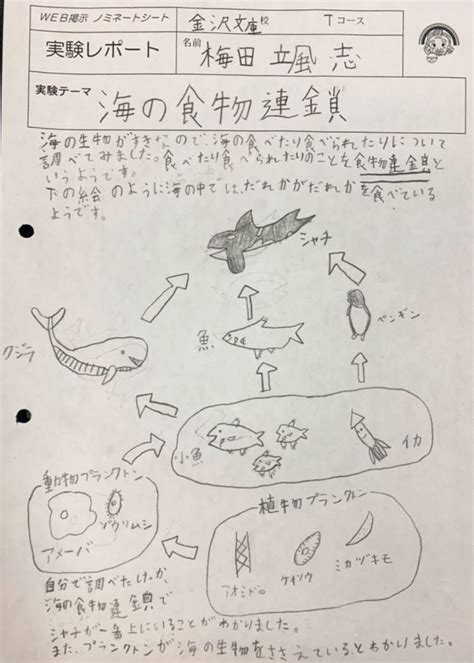 WEB掲示 ノミネートシート
金沢文庫校
Tコース
実験レポート
名前
梅田 颯志
実験テーマ
海の食物連鎖
海の生物がすきなので、海の食べたり食べられたりについて
調べてみました。食べたり食べられたりのことを食物連鎖と
いうようです。
下の絵のように海の中では、だれかがだれかを食べている
ようです。
シャチ
クジラ
魚
ペンギン
小魚
イカ
動物プランクトン
ゾウリムシ
アメーバ
植物プランクトン
アオミドロ
ケイソウ
ミカヅキモ
自分で調べたけっか、
海の食物連鎖で
シャチが一番上にいることがわかりました。
また、プランクトンが海の生物をささえているとわかりました。